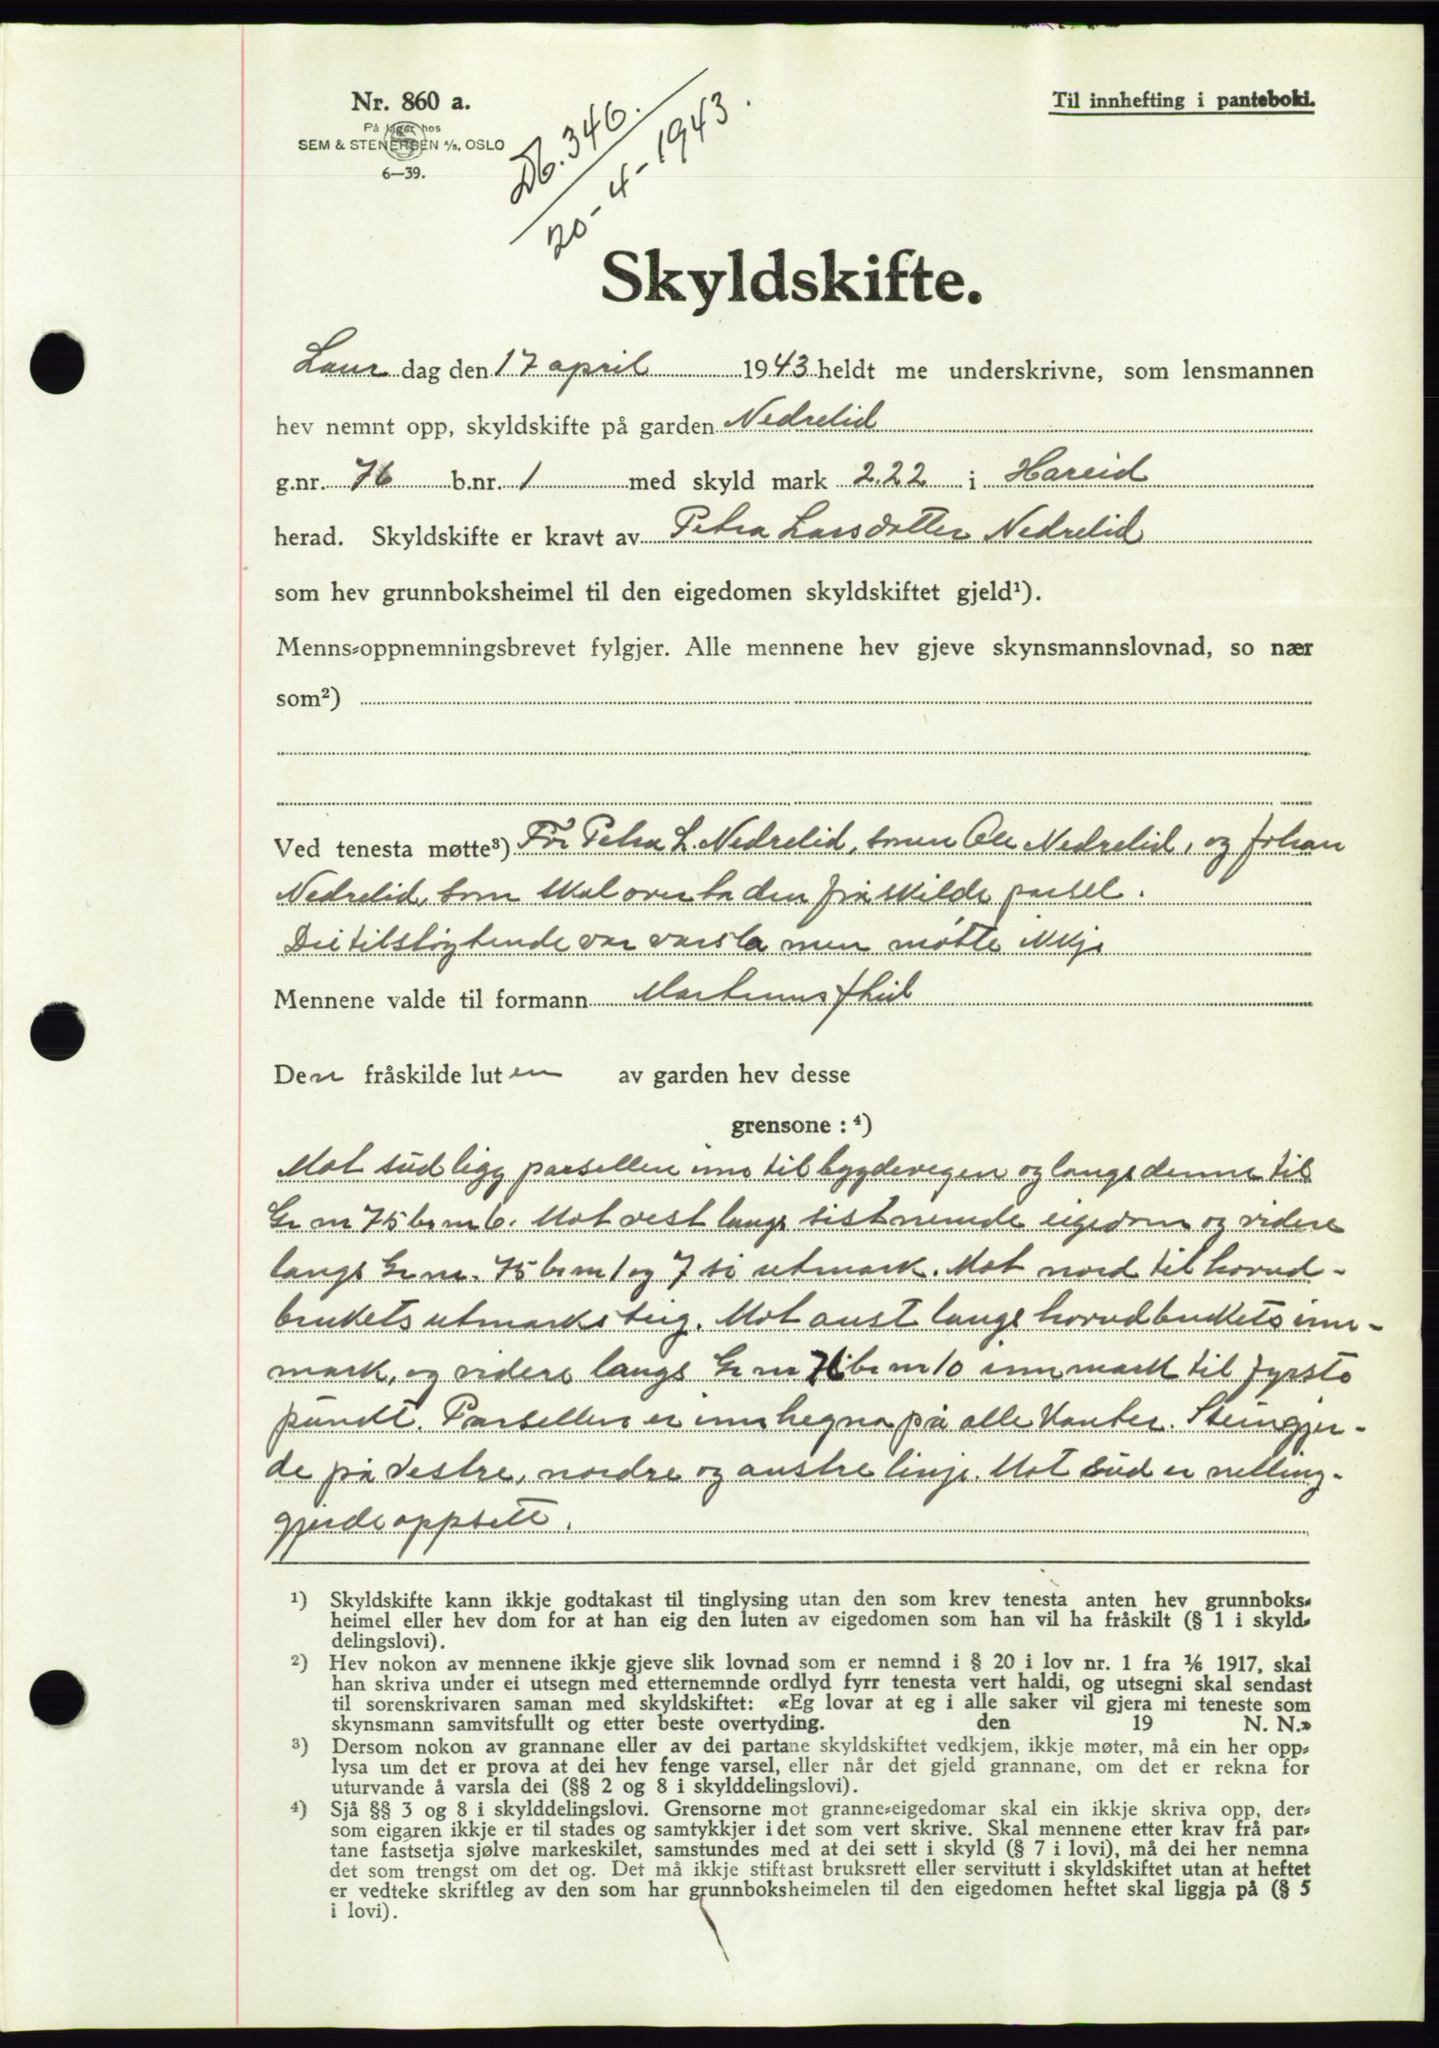 Nr. 860 a.
På lager hos
SEM & STENERSEN A/S, OSLO
6—39.
Db. 346.
20-4-1943.
Til innhefting i panteboki.
Skyldskifte.
Laur dag den 17 april 1943 heldt me underskrivne, som lensmannen
hev nemnt opp, skyldskifte på garden Nedrelid
g.nr. 76 b.nr. 1 med skyld mark 2.22 i Hareid
herad. Skyldskifte er kravt av Petra Larsdotter Nedrelid
som hev grunnboksheimel til den eigedomen skyldskiftet gjeld¹).
Menns-oppnemningsbrevet fylgjer. Alle mennene hev gjeve skynsmannslovnad, so nær
som²)
Ved tenesta møtte³) For Petra L. Nedrelid, sonen Ole Nedrelid, og Johan
Nedrelid, som skal overta den fråskilde parsel.
Dei tilstøytende var varsla men møtte ikkje
Mennene valde til formann Martinus
Den fråskilde luten av garden hev desse
grensone : ⁴)
Mot süd ligg parsellen inn til bygdevegen og langs denne til
Gr nr 75 br nr 6. Mot vest langs sistnemde eigedom og videre
langs Gr nr. 75 br nr 1 og 7 si utmark. Mot nord til hovud-
brukets utmarksteig. Mot aust langs hovudbrukets inn-
mark, og videre langs Gr nr 76 br nr 10 innmark til fyrste
pünkt. Parsellen er innhegna på alle kanter. Steingjer-
de på vestre, nordre og austre linje. Mot süd er netting-
gjerde oppsett.
¹) Skyldskifte kann ikkje godtakast til tinglysing utan den som krev tenesta anten hev grunnboks-
heimel eller hev dom for at han eig den luten av eigedomen som han vil ha fråskilt (§ 1 i skyld-
delingslovi).
²) Hev nokon av mennene ikkje gjeve slik lovnad som er nemnd i § 20 i lov nr. 1 fra 1/6 1917, skal
han skriva under ei utsegn med etternemnde ordlyd fyrr tenesta vert haldi, og utsegni skal sendast
til sorenskrivaren saman med skyldskiftet: «Eg lovar at eg i alle saker vil gjera mi teneste som
skynsmann samvitsfullt og etter beste overtyding. den 19 N. N.»
³) Dersom nokon av grannane eller av dei partane skyldskiftet vedkjem, ikkje møter, må ein her opp-
lysa um det er prova at dei hev fenge varsel, eller når det gjeld grannane, om det er rekna for
uturvande å varsla dei (§§ 2 og 8 i skylddelingslovi).
⁴) Sjå §§ 3 og 8 i skylddelingslovi. Grensorne mot granne-eigedomar skal ein ikkje skriva opp, der-
som eigaren ikkje er til stades og samtykkjer i det som vert skrive. Skal mennene etter krav frå par-
tane fastsetja sjølve markeskilet, samstundes med at dei sett i skyld (§ 7 i lovi), må dei her nemna
det som trengst om det og. Det må ikkje stiftast bruksrett eller servitutt i skyldskiftet utan at heftet
er vedteke skriftleg av den som har grunnboksheimelen til den eigedomen heftet skal liggja på (§ 5
i lovi).